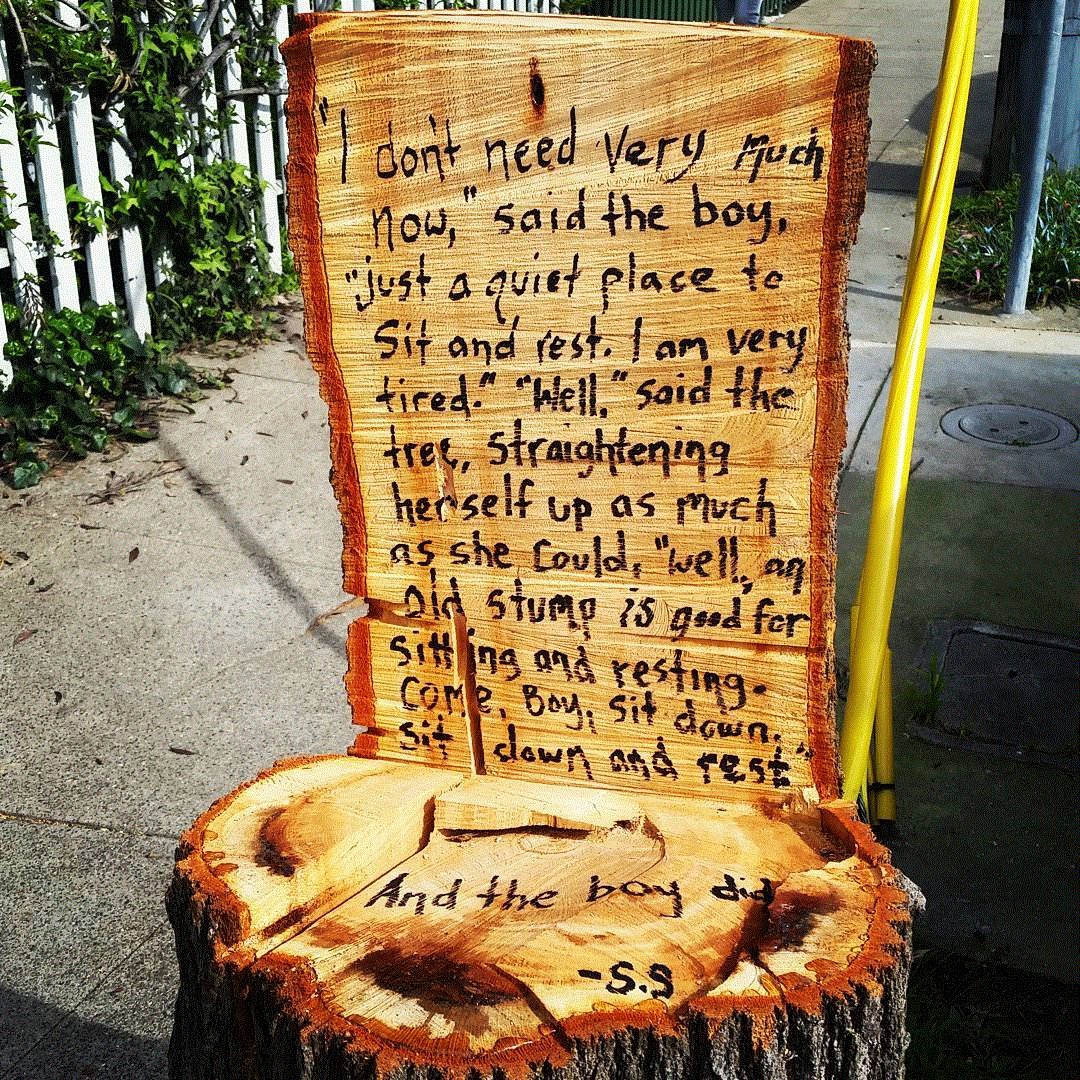 "I don't need very much
now," said the boy,
"just a quiet place to
sit and rest. I am very
tired." "Well," said the
tree, straightening
herself up as much
as she could, "well, an
old stump is good for
sitting and resting.
Come, Boy, sit down.
sit down and rest."
And the boy did
-S.S